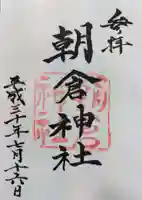 奉拝
朝倉神社
平成三十年七月十六日